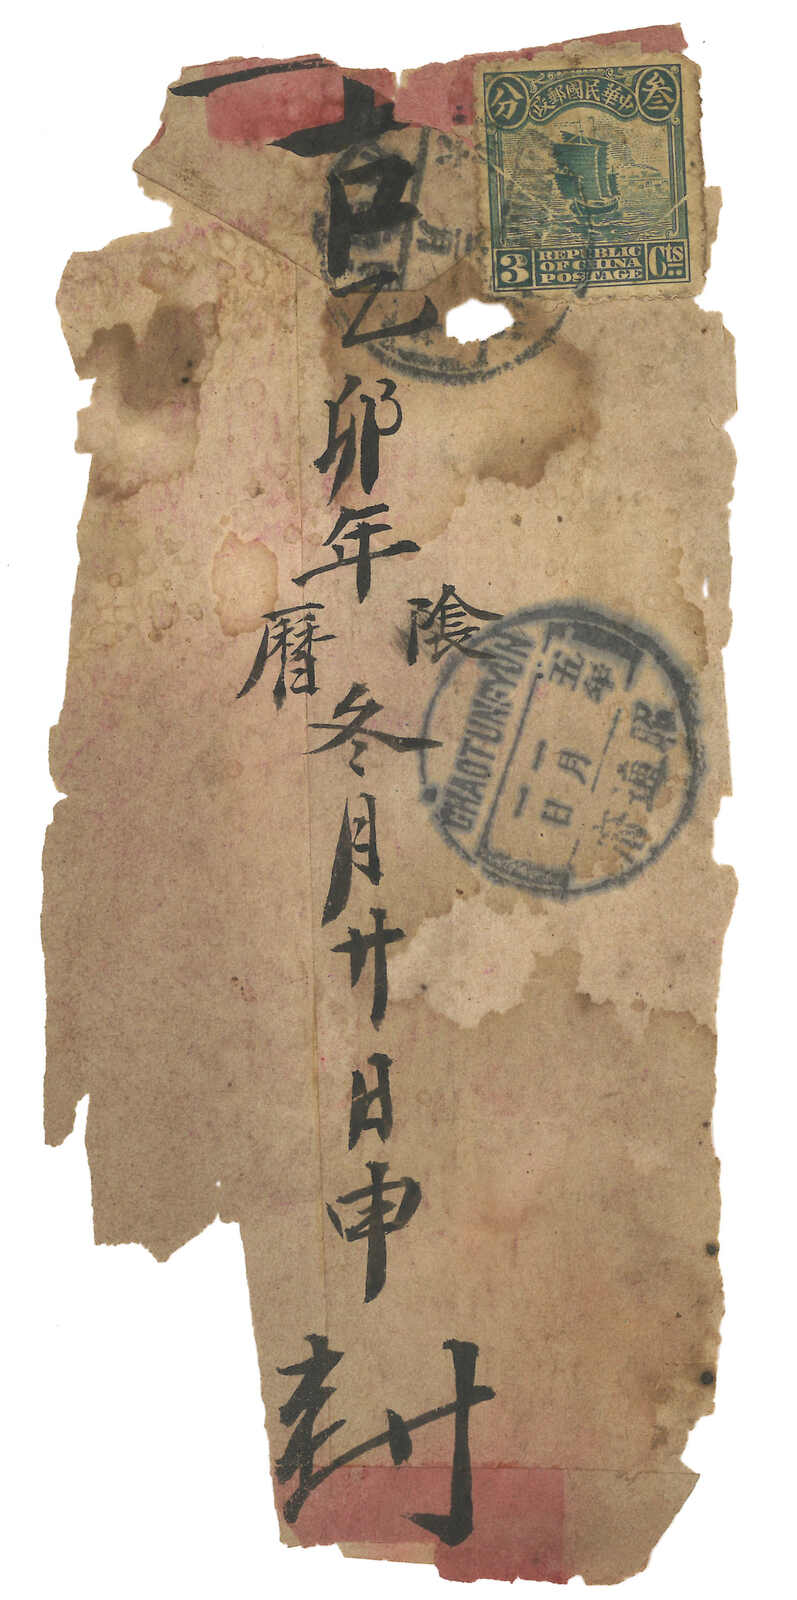 叁 中華民國郵政 分
3 REPUBLIC Cts
OF CHINA
POSTAGE
吉
乙卯年
陰曆
冬月廿日申
封
昭通
五年
一月
一日
CHAOTUNGYUN